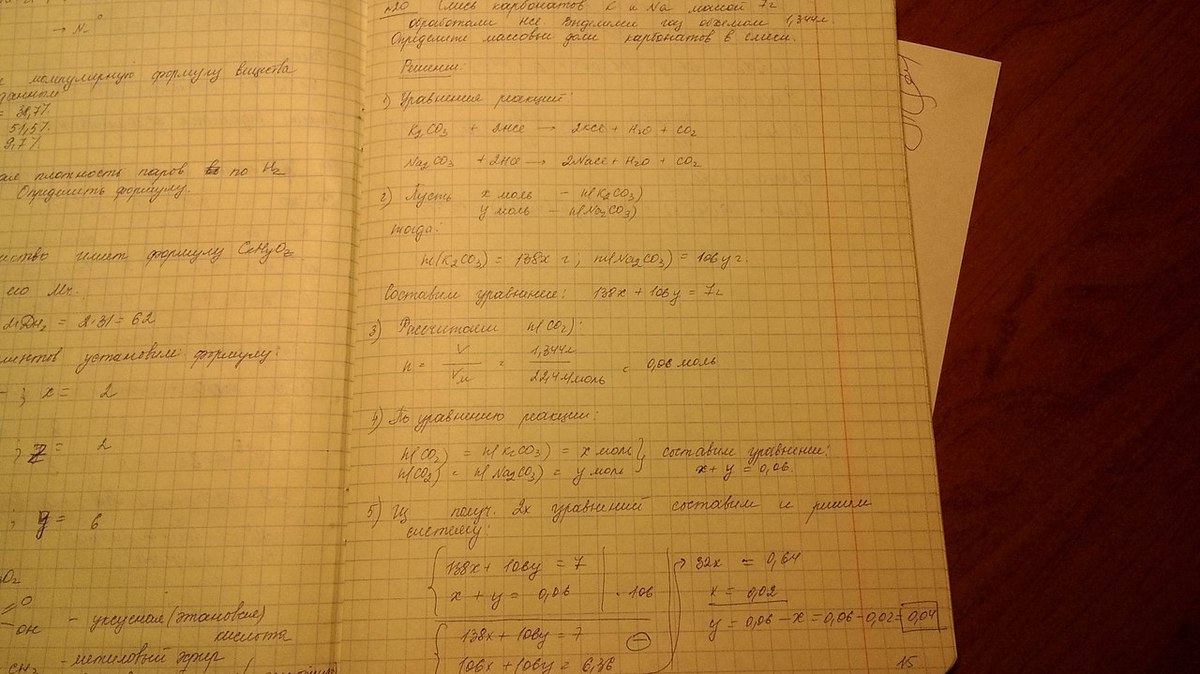 → N₂⁰
молекулярную формулу вещества
данным
= 38,7%
51,5%
9,7%
плотность паров по H₂
Определить формулу.
имеет формулу CxHyOz
его Mr.
2·31 = 62
установим формулу:
; x = 2
; z = 2
; y = 6
O₂
=O
OH - уксусная (этановая)
кислота
CH₃ - метиловый эфир
№20 Смесь карбонатов K и Na массой 7г
обработали HCl. Выделился газ объемом 1,344л.
Определите массовые доли карбонатов в смеси.
Решение:
1) Уравнения реакций:
K₂CO₃ + 2HCl → 2KCl + H₂O + CO₂
Na₂CO₃ + 2HCl → 2NaCl + H₂O + CO₂
2) Пусть x моль - n(K₂CO₃)
y моль - n(Na₂CO₃)
тогда:
m(K₂CO₃) = 138x г ; m(Na₂CO₃) = 106y г.
Составим уравнение: 138x + 106y = 7г
3) Рассчитаем n(CO₂):
n = V / Vм = 1,344л / 22,4 л/моль = 0,06 моль
4) По уравнению реакции:
n(CO₂) = n(K₂CO₃) = x моль } составим уравнение:
n(CO₂) = n(Na₂CO₃) = y моль } x + y = 0,06.
5) Из получ. 2х уравнений составим и решим
систему:
{ 138x + 106y = 7 | 32x = 0,64
{ x + y = 0,06 | · 106 x = 0,02
y = 0,06 - x = 0,06 - 0,02 = 0,04
{ 138x + 106y = 7 (-)
{ 106x + 106y = 6,36
15